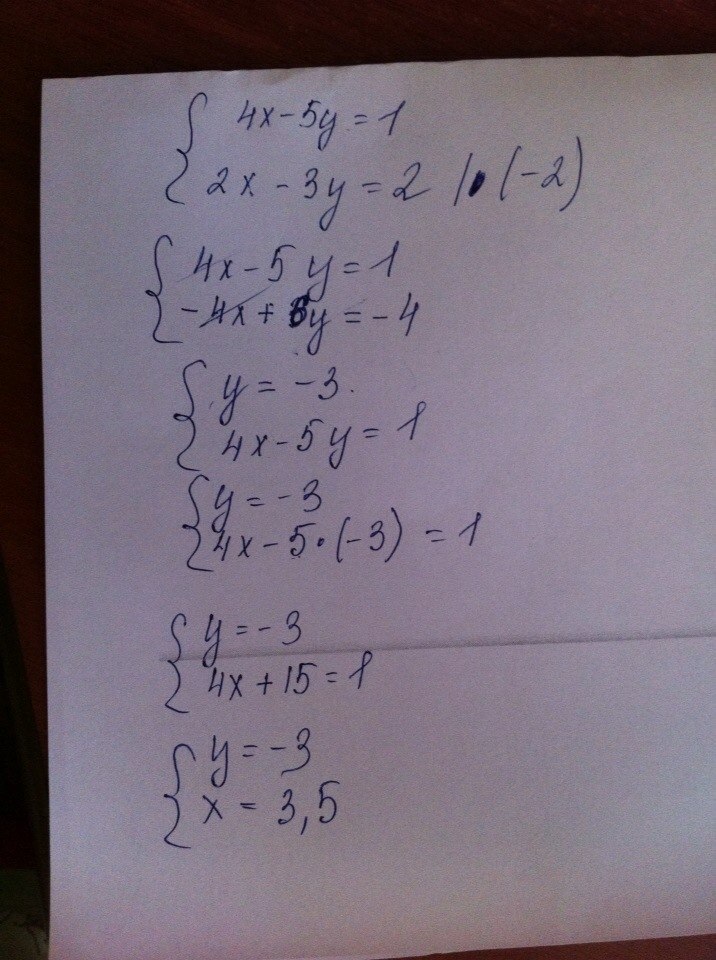 4x - 5y = 1
2x - 3y = 2 | · (-2)
4x - 5y = 1
-4x + 6y = -4
y = -3
4x - 5y = 1
y = -3
4x - 5 · (-3) = 1
y = -3
4x + 15 = 1
y = -3
x = 3,5